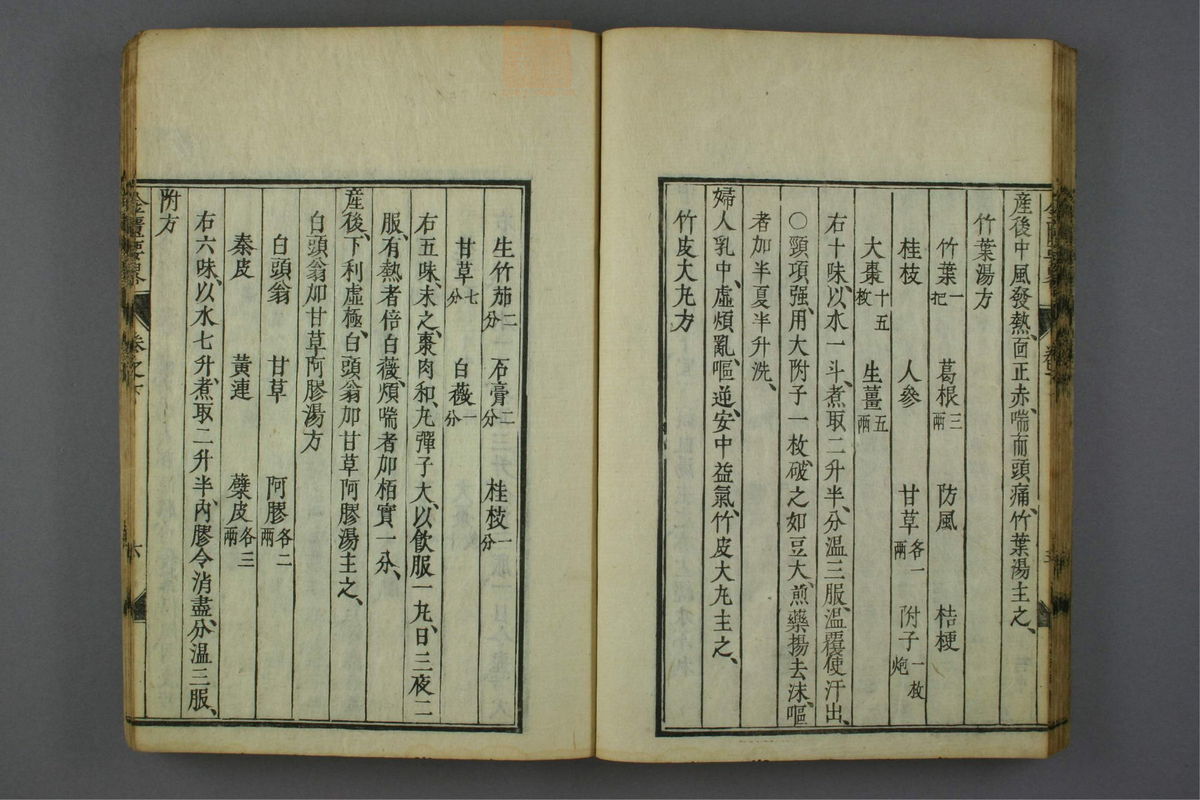 産後中風發熱、面正赤、喘而頭痛、竹葉湯主之、
竹葉湯方
竹葉一把 葛根三兩 防風 桔梗
桂枝 人參 甘草各一兩 附子一枚炮
大棗十五枚 生薑五兩
右十味、以水一斗、煮取二升半、分温三服、温覆使汗出、
○頸項强、用大附子一枚、破之如豆大、煎藥揚去沫、嘔
者加半夏半升洗、
婦人乳中、虛煩亂、嘔逆、安中益氣、竹皮大丸主之、
竹皮大丸方
生竹茹二分 石膏二分 桂枝一分
甘草七分 白薇一分
右五味、末之、棗肉和、丸彈子大、以飲服一丸、日三夜二
服、有熱者倍白薇、煩喘者加栢實一分、
産後、下利虛極、白頭翁加甘草阿膠湯主之、
白頭翁加甘草阿膠湯方
白頭翁 甘草 阿膠各二兩
秦皮 黃連 蘗皮各三兩
右六味、以水七升、煮取二升半、內膠令消盡、分温三服、
附方
金匱要畧 卷之六 六